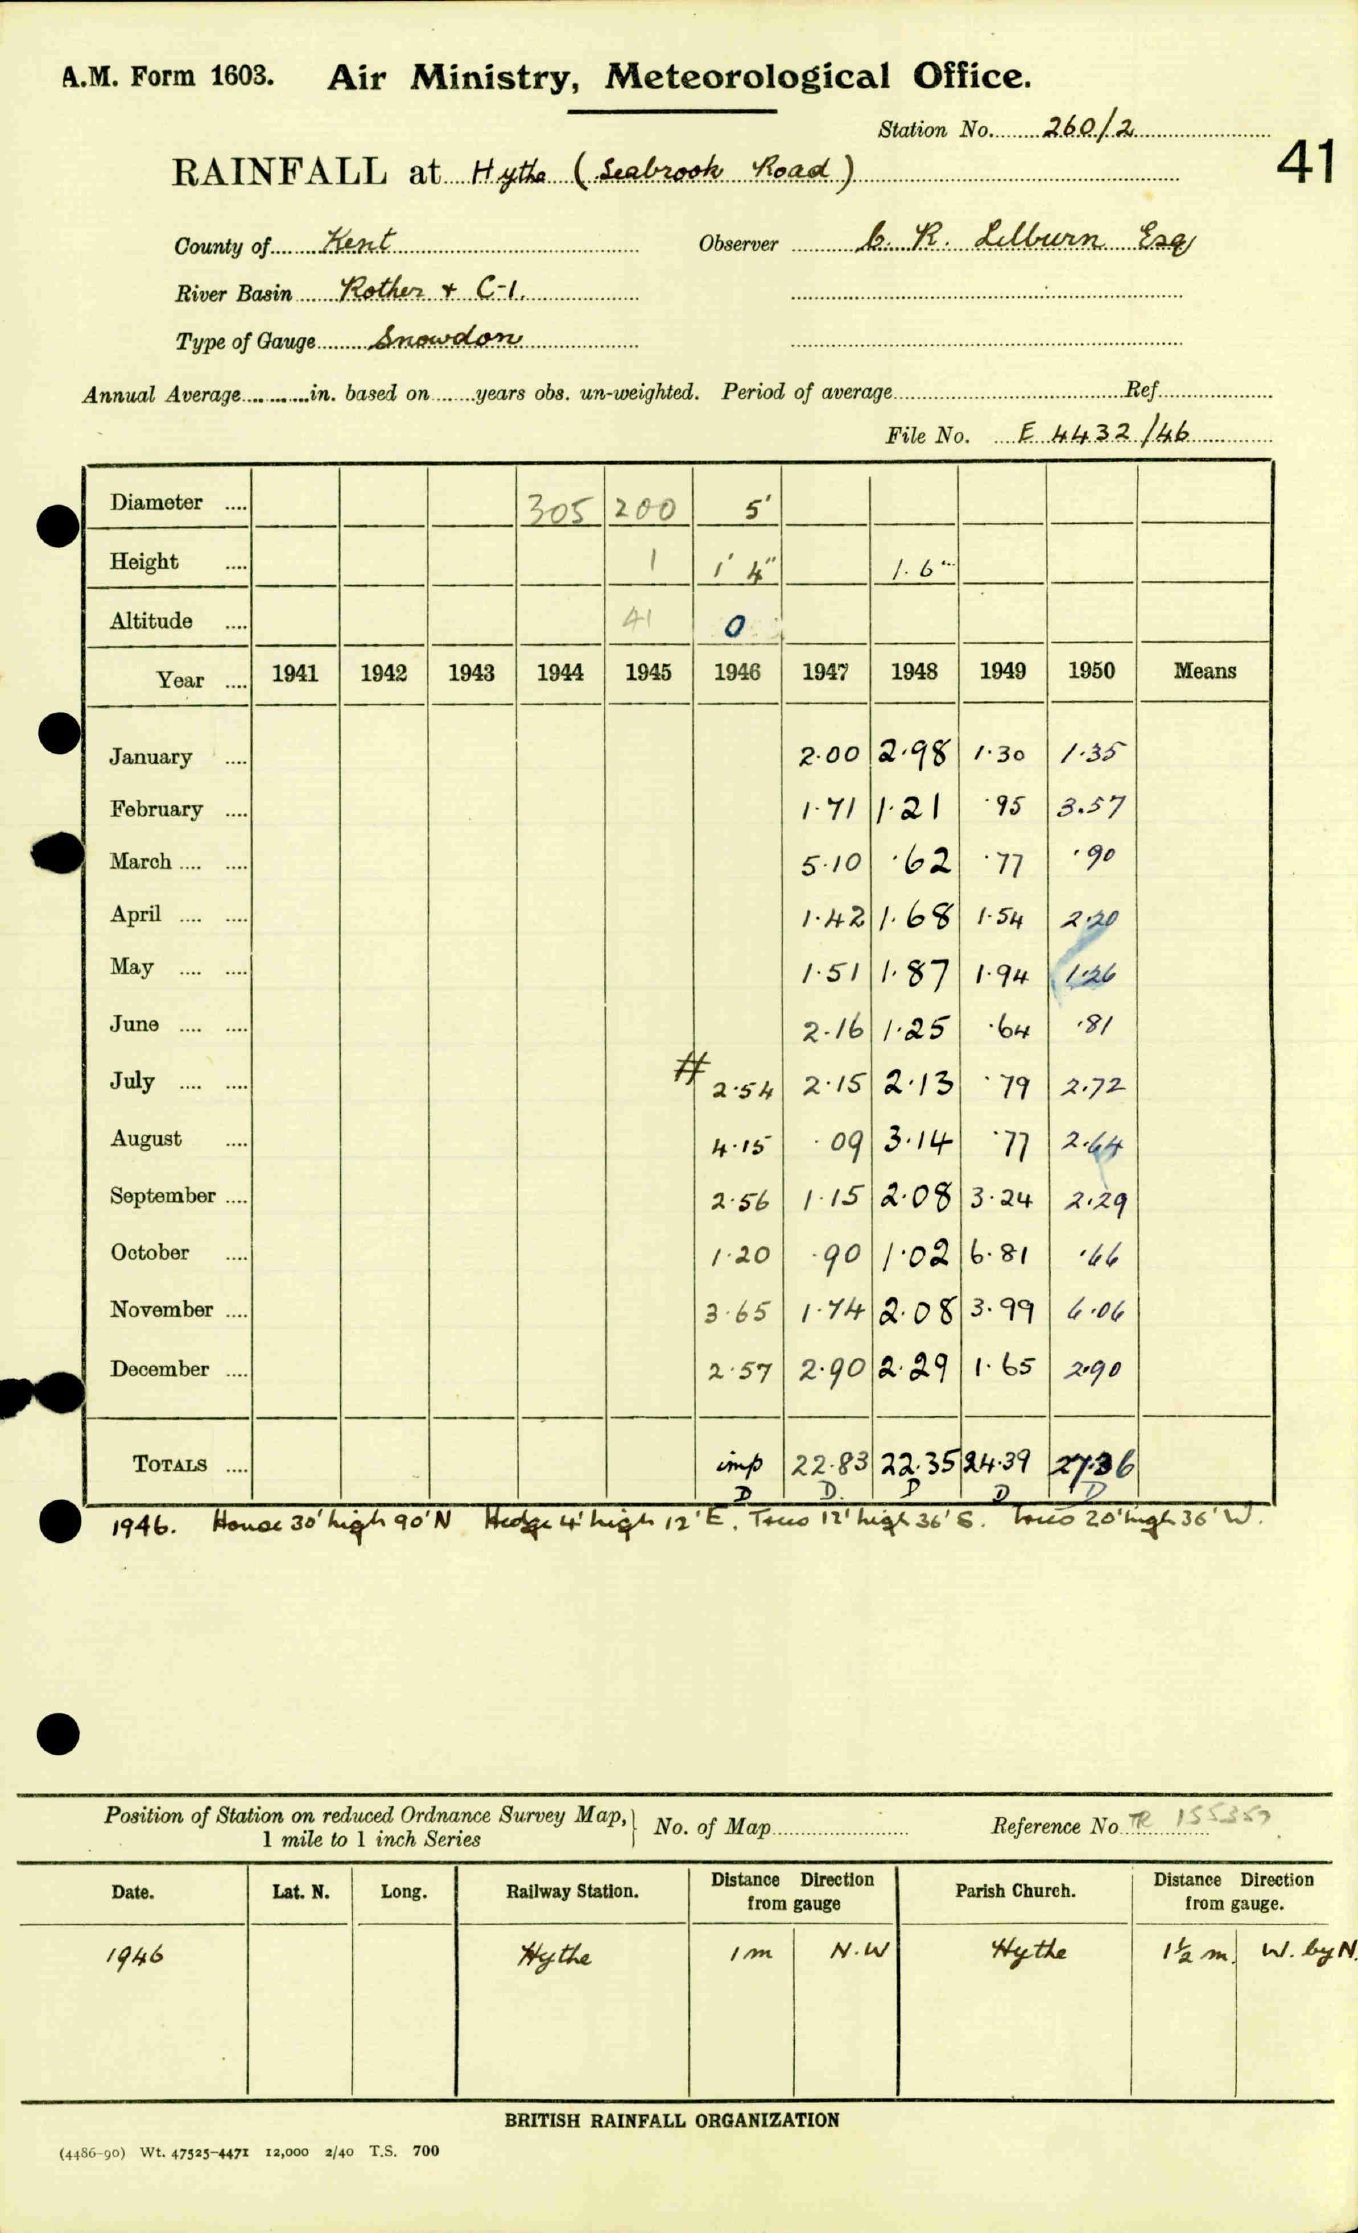 A.M. Form 1603. Air Ministry, Meteorological Office.
Station No. 260/2
41
RAINFALL at Hythe (Seabrook Road)
County of Kent Observer C. R. Lilburn Esq
River Basin Rother + C-1.
Type of Gauge Snowdon
Annual Average in. based on years obs. un-weighted. Period of average Ref
File No. E 4432/46
Diameter 305 200 5'
Height 1 1' 4" 1. 6"
Altitude 41 0
Year 1941 1942 1943 1944 1945 1946 1947 1948 1949 1950 Means
January 2.00 2.98 1.30 1.35
February 1.71 1.21 .95 3.57
March 5.10 .62 .77 .90
April 1.42 1.68 1.54 2.20
May 1.51 1.87 1.94 1.26
June 2.16 1.25 .64 .81
July # 2.54 2.15 2.13 .79 2.72
August 4.15 .09 3.14 .77 2.64
September 2.56 1.15 2.08 3.24 2.29
October 1.20 .90 1.02 6.81 .66
November 3.65 1.74 2.08 3.99 6.06
December 2.57 2.90 2.29 1.65 2.90
TOTALS imp 22.83 22.35 24.39 27.36
D D. D D D
1946. House 30' high 90' N Hedge 4' high 12' E. Trees 12' high 36' S. Trees 20' high 36' W.
Position of Station on reduced Ordnance Survey Map, 1 mile to 1 inch Series No. of Map Reference No TR 155357
Date. Lat. N. Long. Railway Station. Distance Direction from gauge Parish Church. Distance Direction from gauge.
1946 Hythe 1 m N.W Hythe 1½ m. W. by N.
BRITISH RAINFALL ORGANIZATION
(4486-90) Wt. 47525-4471 12,000 2/40 T.S. 700